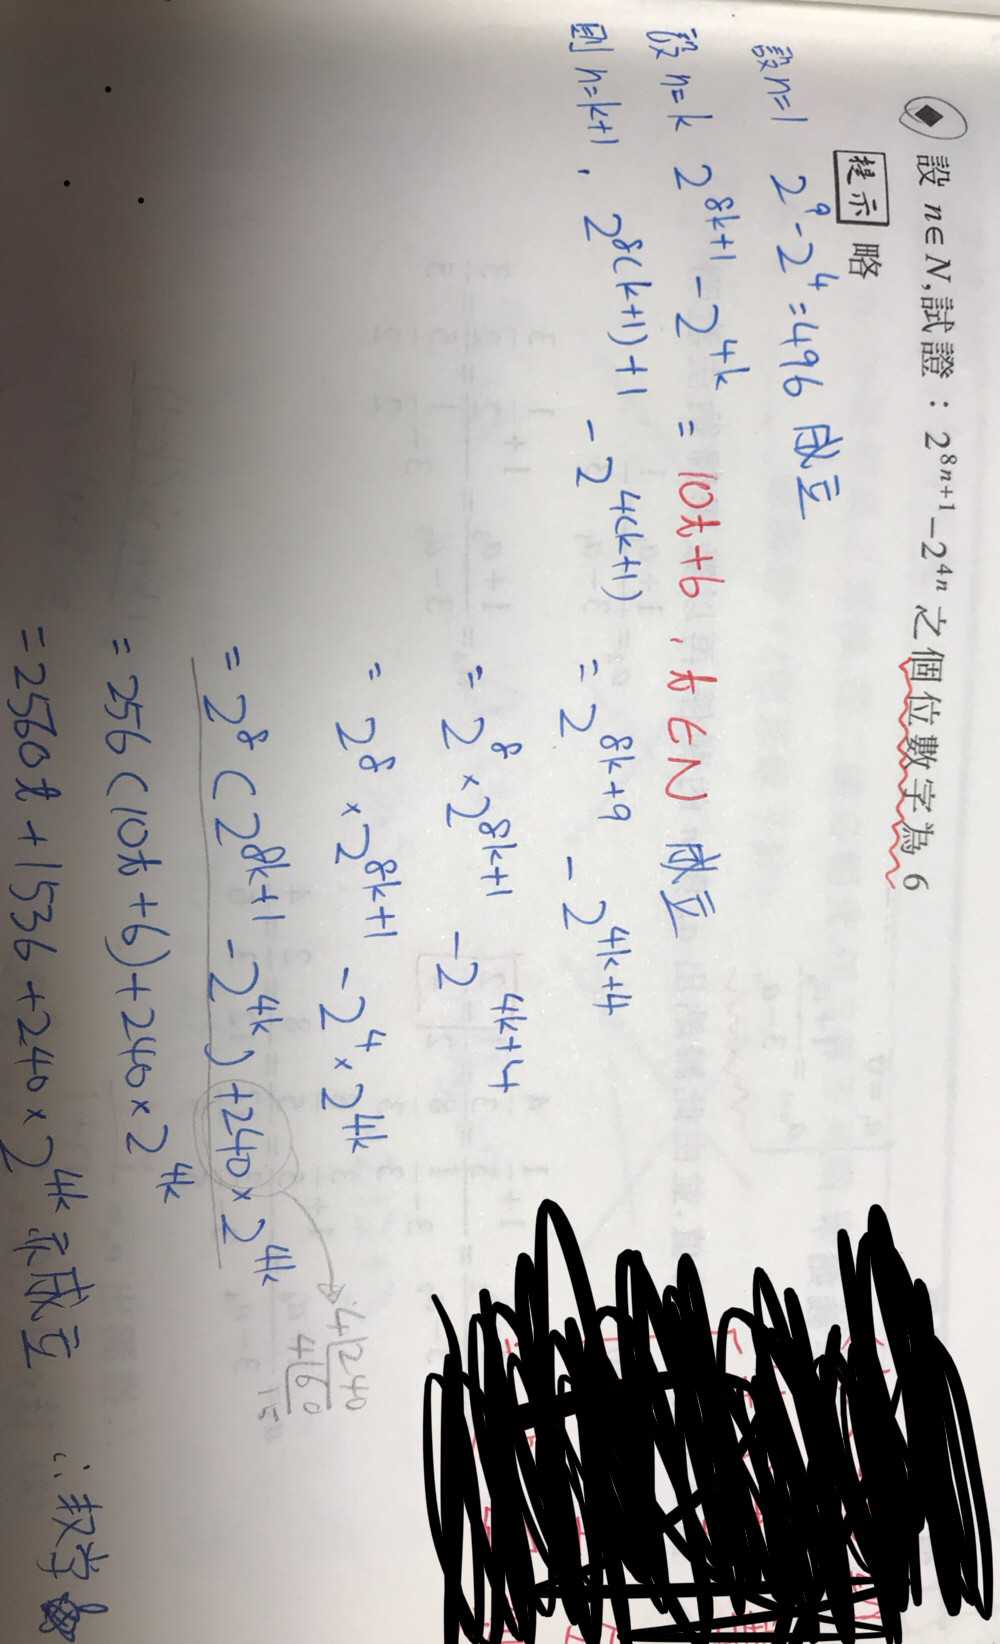 設 n∈N,試證：2^{8n+1}-2^{4n} 之個位數字為 6
提示 略
設n=1 2^9-2^4=496 成立
設n=k 2^{8k+1}-2^{4k} = 10t+6, t∈N 成立
則n=k+1, 2^{8(k+1)+1} - 2^{4(k+1)} = 2^{8k+9} - 2^{4k+4}
= 2^8×2^{8k+1} - 2^{4k+4}
= 2^8×2^{8k+1} - 2^4×2^{4k}
= 2^8(2^{8k+1} - 2^{4k})+240×2^{4k}
4 240
4 60
15
= 256(10t+6)+240×2^{4k}
= 2560t+1536+240×2^{4k} 亦成立 ∴ 学